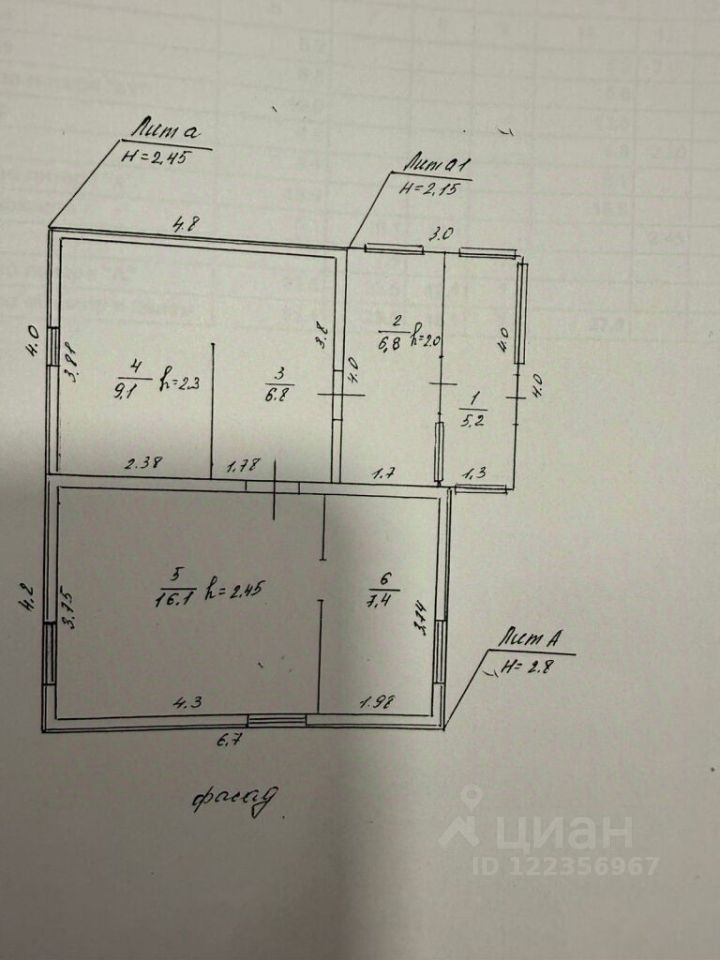 Лит а
H=2,45
Лит а1
H=2,15
4.8
3.0
4.0
3.88
3.8
4.0
2
6,8 h=2.0
4.0
4.0
4
9,1 h=2.3
3
6.8
1
5.2
2.38
1.78
1.7
1.3
4.2
3.75
5
16,1 h=2.45
6
7,4
3.74
Лит А
H=2.8
4.3
1.98
6.7
фасад
циан
ID 122356967